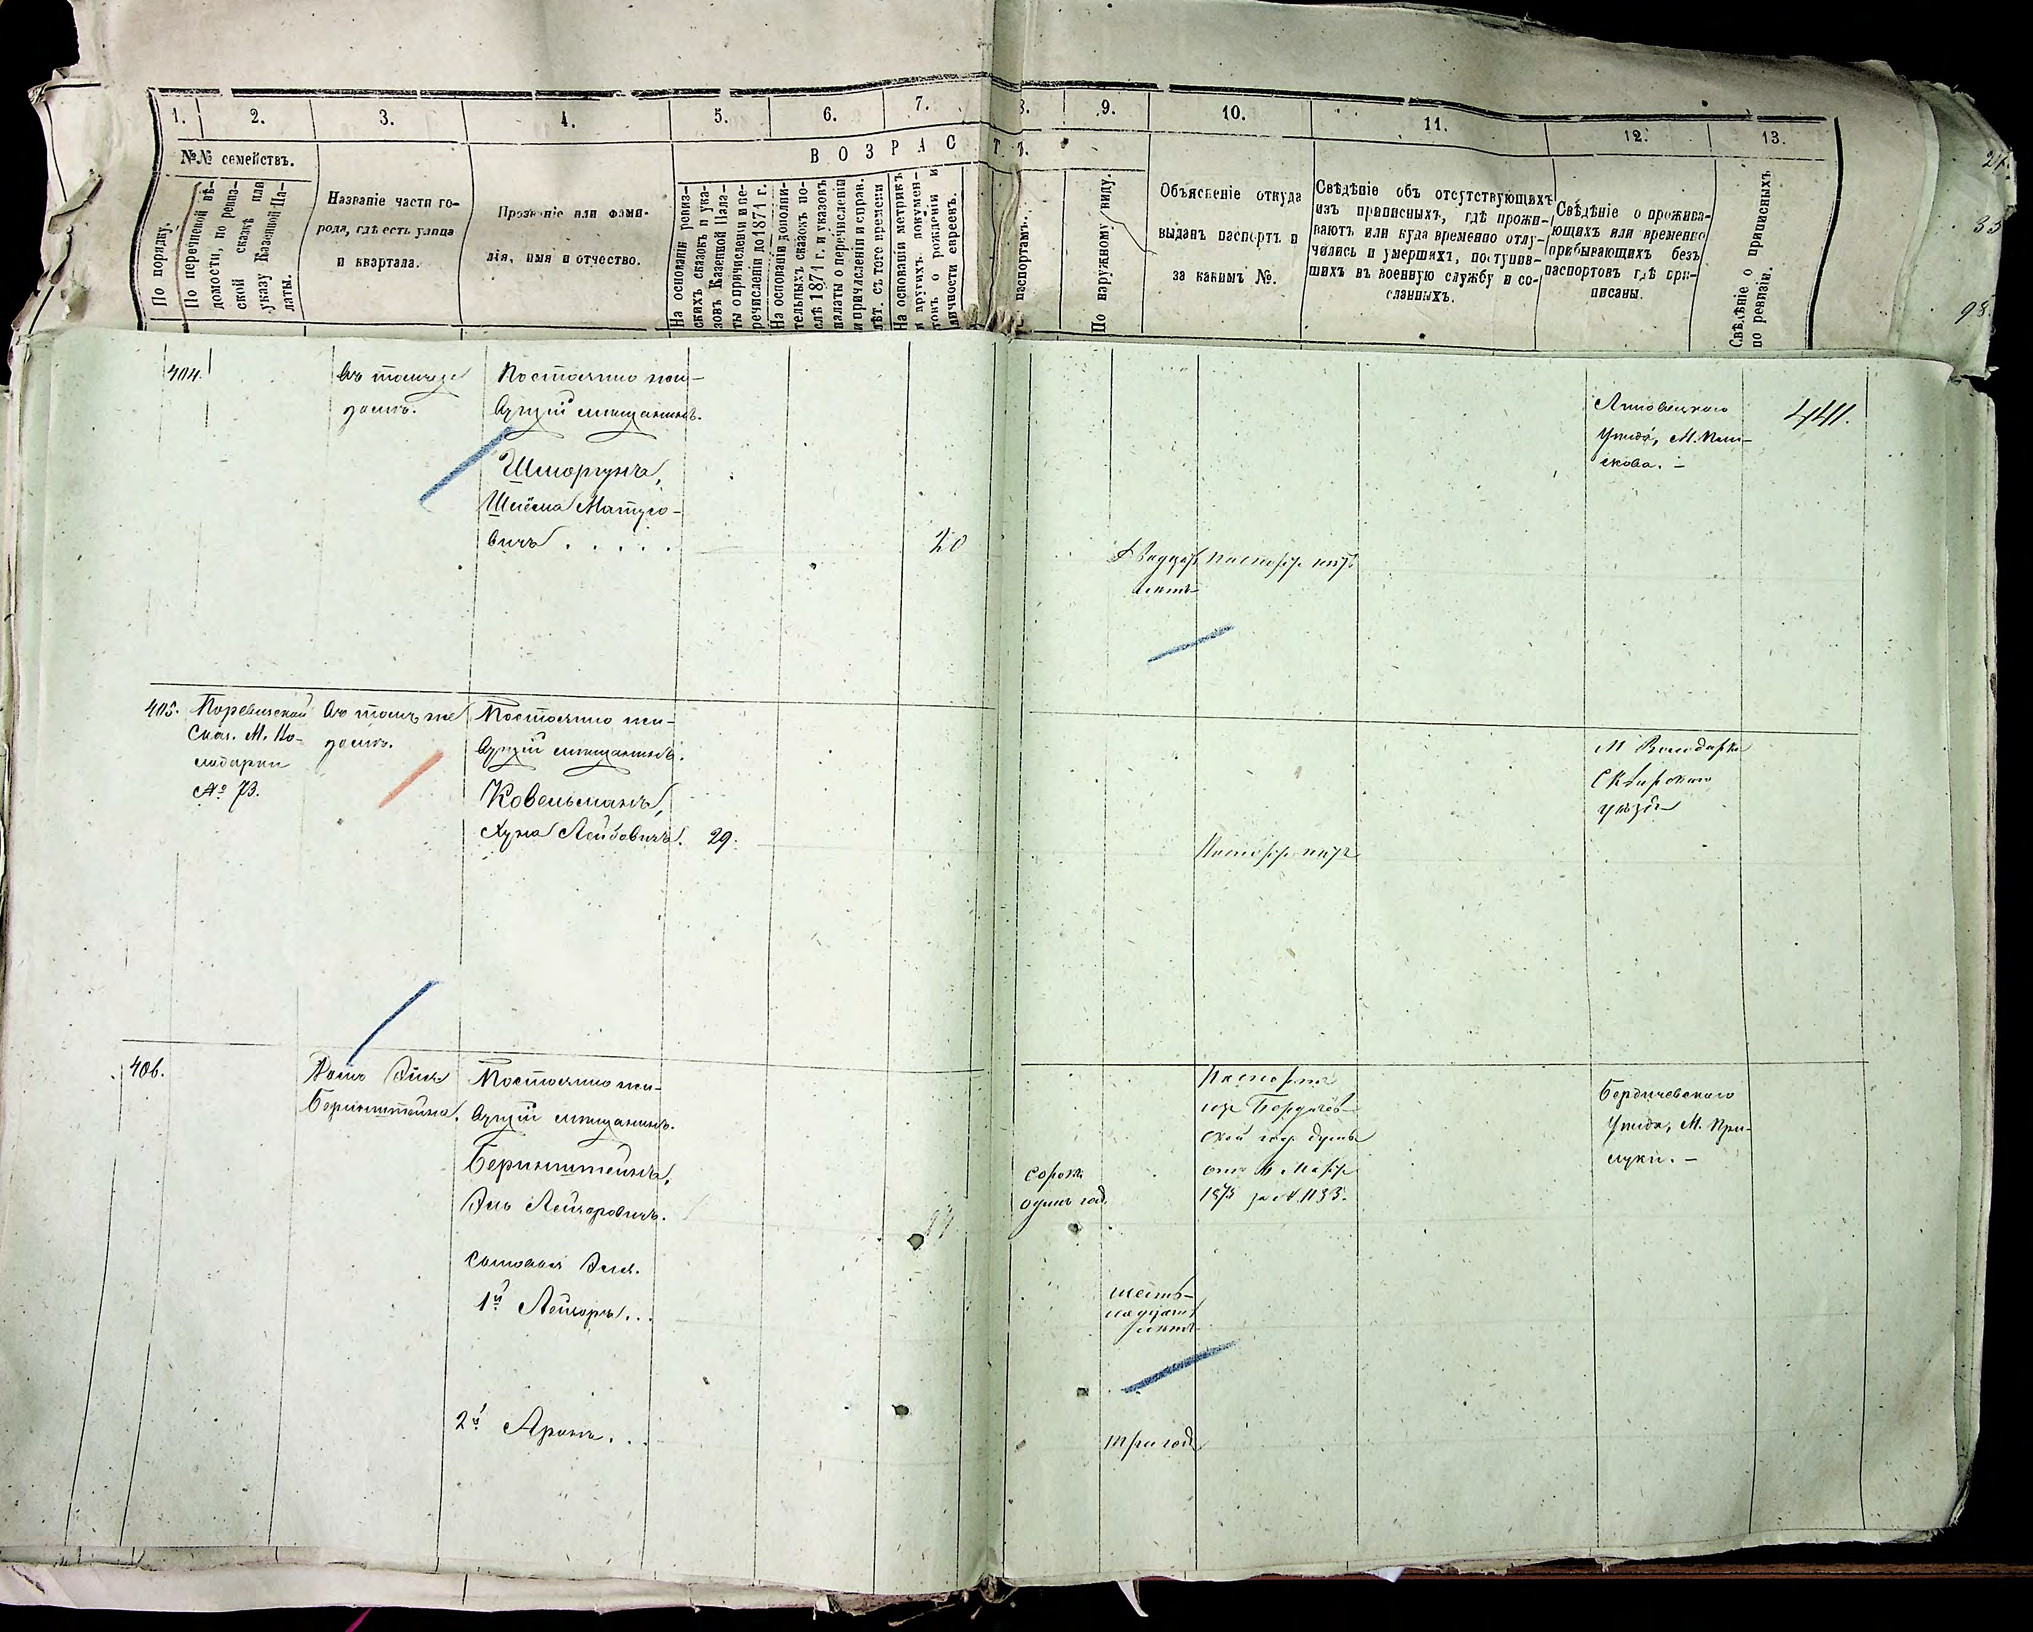 1.
2.
3.
4.
5.
6.
7.
8.
9.
10.
11.
12.
13.
№№ семействъ.
В О З Р А С Т Ъ.
По порядку.
По перечневой вѣ-
домости, по ревиз-
ской сказкѣ или
указу Казенной Па-
латы.
Названіе части го-
рода, гдѣ есть улица
и квартала.
Прозваніе или фами-
лія, имя и отчество.
На основаніи ревиз-
скихъ сказокъ и ука-
зовъ Казенной Пала-
ты о причисленіи и пе-
речисленіи до 1871 г.
На основаніи дополни-
тельныхъ сказокъ по-
слѣ 1871 г. и указовъ
палаты о перечисленіи
и причисленіи и справ.
лѣт. съ того времени
На основаніи метрикъ
и другихъ докумен-
товъ о рожденіи и
личности евреевъ.
паспортамъ.
По наружному виду.
Объясненіе откуда
выданъ паспортъ и
за какимъ №.
Свѣдѣніе объ отсутствующихъ
изъ приписныхъ, гдѣ прожи-
ваютъ или куда временно отлу-
чились и умершихъ, поступив-
шихъ въ военную службу и со-
сланныхъ.
Свѣдѣніе о прожива-
ющихъ или временно
прибывающихъ безъ
паспортовъ гдѣ при-
писаны.
Свѣдѣніе о приписныхъ
по ревизіи.
404.
Въ томъ же
домѣ.
Постоянно жи-
вущій мѣщанинъ.
Шморгунъ,
Шлёма Матусо-
вичъ . . . . .
20
Двадцать
лѣтъ
Паспорт нѣтъ
Липовецкаго
Уѣзда, М. Пли-
скова. –
441.
405.
М. Во-
лодарки
№ 73.
Въ томъ же
домѣ.
Постоянно жи-
вущій мѣщанинъ.
Ковельманъ,
Хуна Лейбовичъ.
29.
Паспорт нѣтъ
М Володарки
Сквирскаго
уѣзда
406.
Домъ Эля
Беринштейна.
Постоянно жи-
вущій мѣщанинъ.
Беринштейнъ,
Эль Лейзоровичъ.
сорокъ
одинъ год.
Паспортъ
изъ Бердичев-
ской гор. думы
1875 за № 1133.
Бердичевскаго
Уѣзда, М. При-
луки. –
Сыновья Эля.
1й Лейзоръ. . .
шест-
надцать
лѣтъ
2й Аронъ. . .
три года